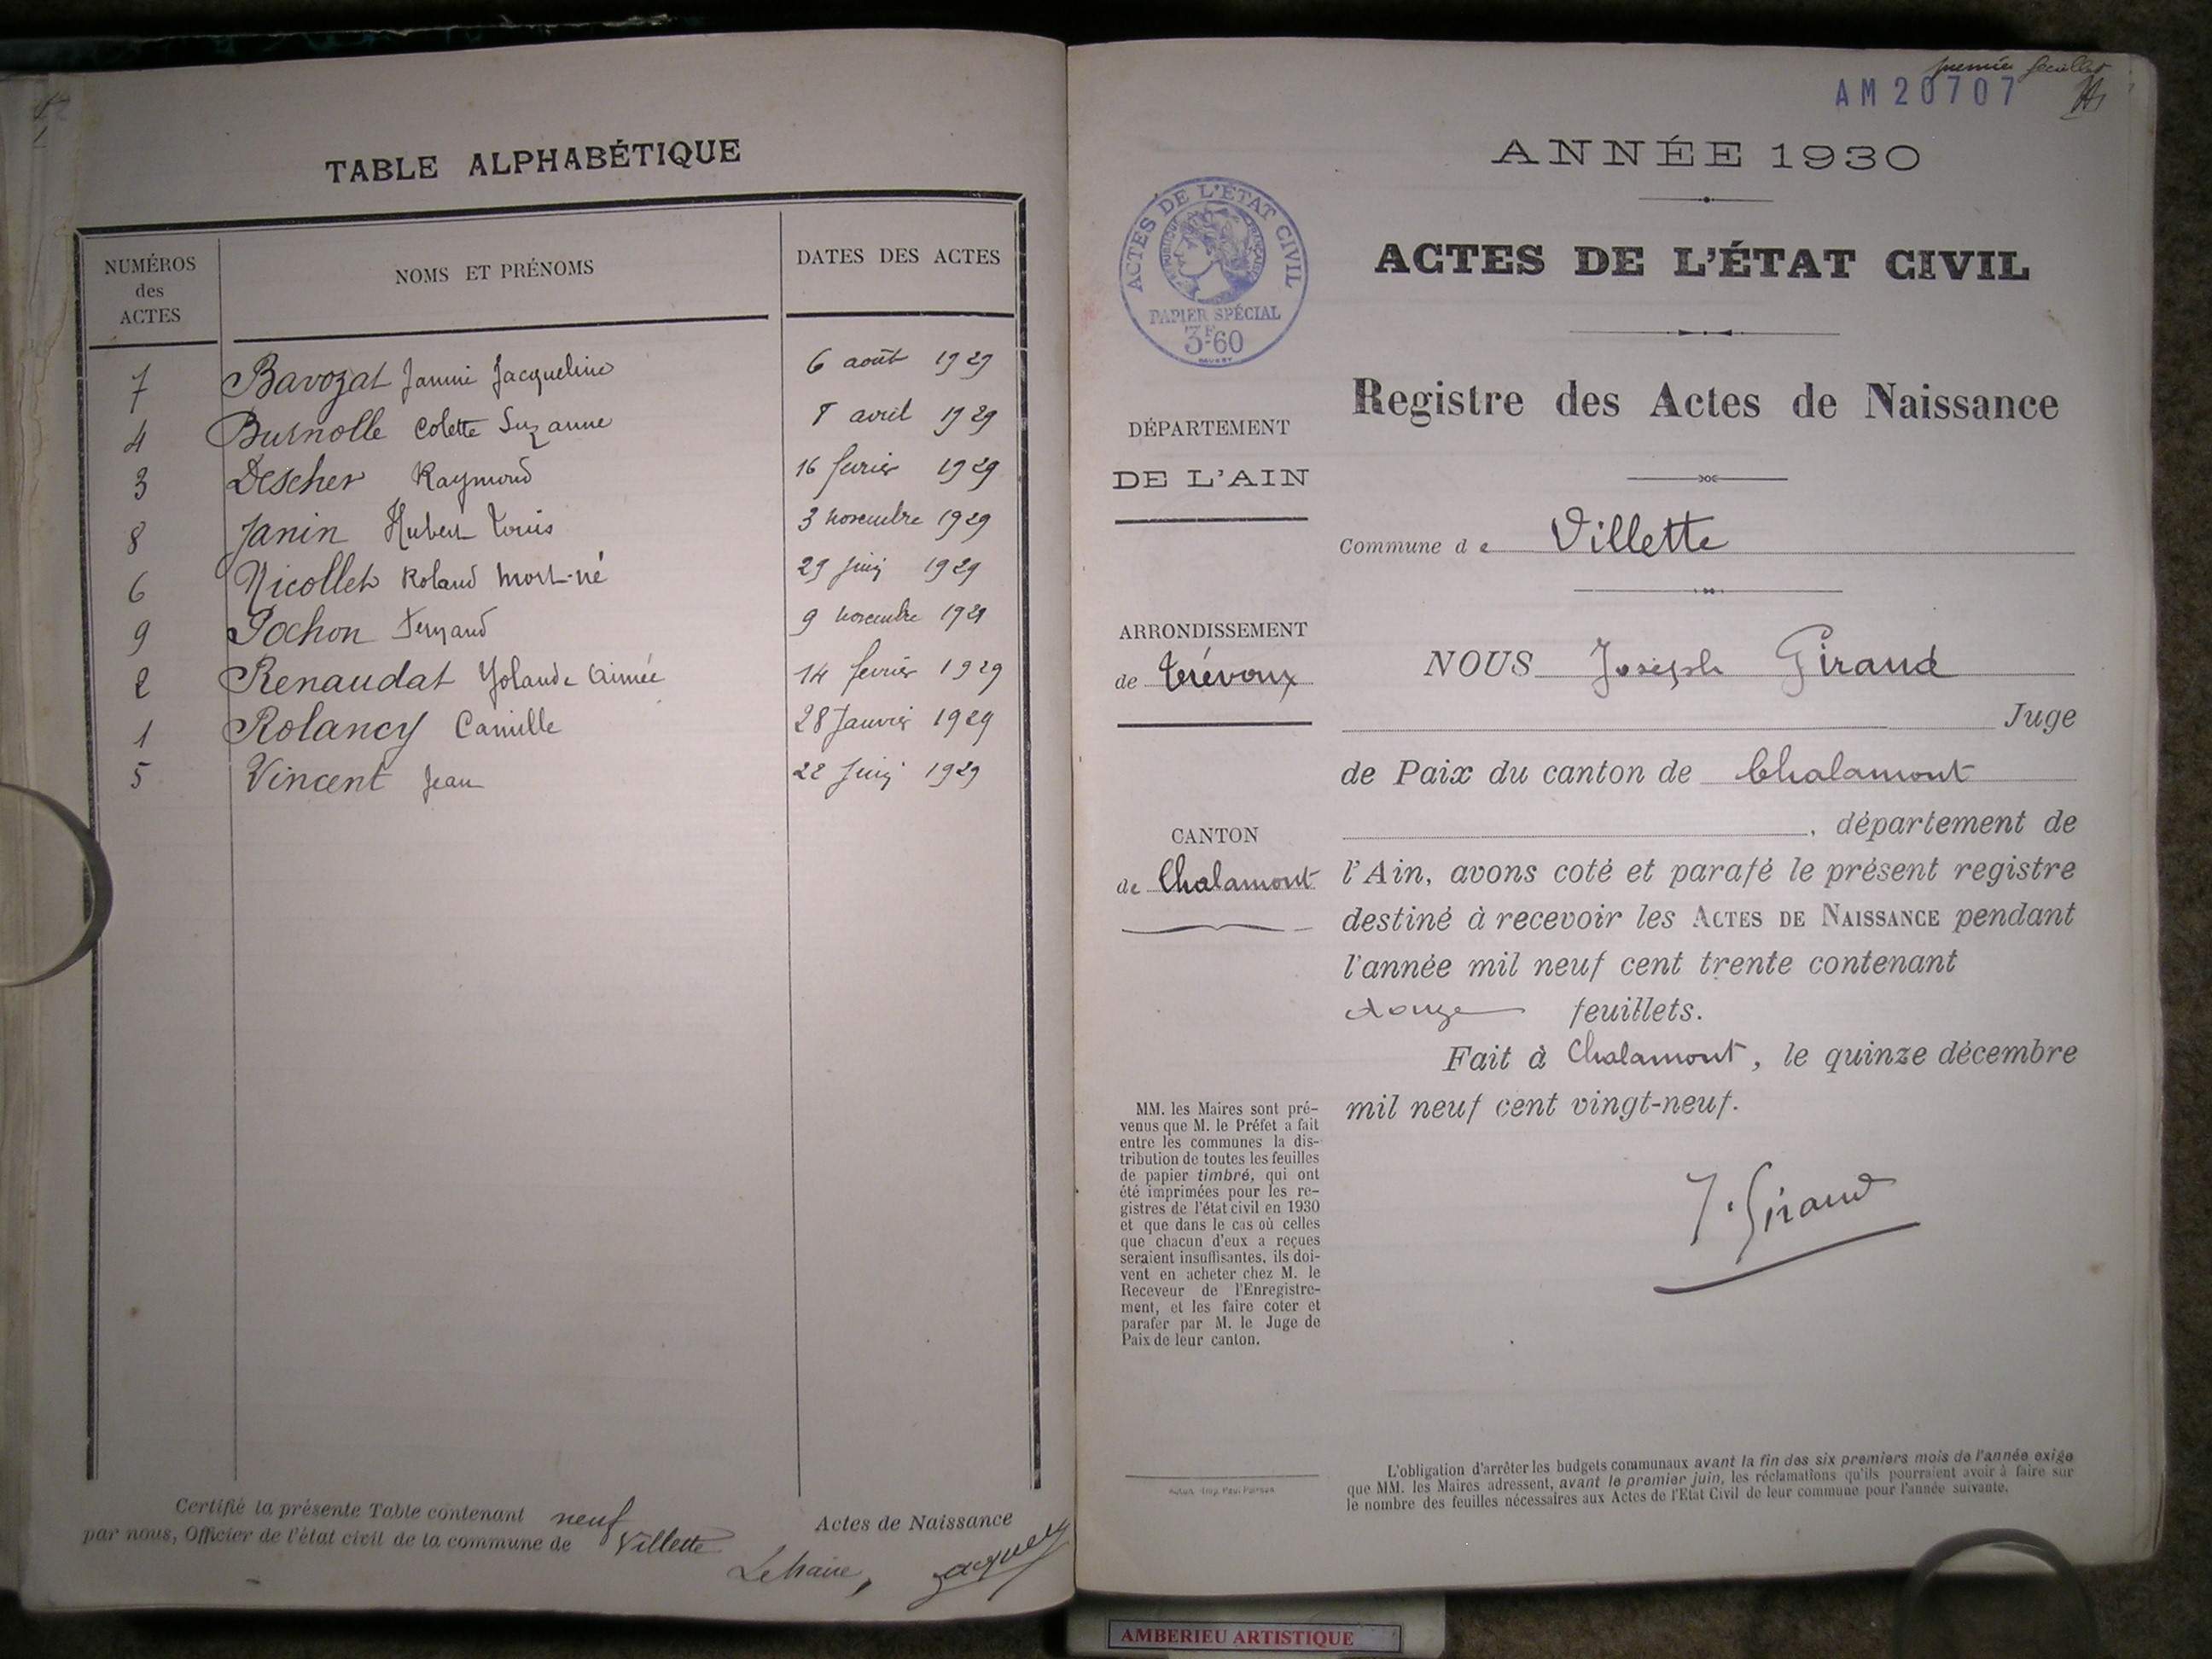 TABLE ALPHABÉTIQUE
NUMÉROS des ACTES NOMS ET PRÉNOMS DATES DES ACTES
7 Bavozat Janine Jacqueline 6 août 1929
4 Burnolle Colette Suzanne 8 avril 1929
3 Descher Raymond 16 février 1929
8 Janin Hubert Louis 3 novembre 1929
6 Nicollet Roland mort-né 29 juin 1929
9 Pochon Fernand 9 novembre 1929
2 Renaudat Yolande Aimée 14 février 1929
1 Rolancy Camille 28 Janvier 1929
5 Vincent Jean 22 juin 1929
Certifié la présente Table contenant neuf Actes de Naissance
par nous, Officier de l'état civil de la commune de Villette
Le Maire,
premier feuillet
AM 20707
ANNÉE 1930
ACTES DE L'ÉTAT CIVIL
RÉPUBLIQUE FRANÇAISE
PAPIER SPÉCIAL
3F.60
ACTES DE L'ÉTAT CIVIL
Registre des Actes de Naissance
DÉPARTEMENT
DE L'AIN
Commune de Villette
ARRONDISSEMENT
de Trévoux
NOUS Joseph Giraud
Juge
de Paix du canton de Chalamont
, département de
CANTON
de Chalamont
l'Ain, avons coté et parafé le présent registre
destiné à recevoir les ACTES DE NAISSANCE pendant
l'année mil neuf cent trente contenant
douze feuillets.
Fait à Chalamont, le quinze décembre
mil neuf cent vingt-neuf.
J. Giraud
MM. les Maires sont pré-
venus que M. le Préfet a fait
entre les communes la dis-
tribution de toutes les feuilles
de papier timbré, qui ont
été imprimées pour les re-
gistres de l'état civil en 1930
et que dans le cas où celles
que chacun d'eux a reçues
seraient insuffisantes, ils doi-
vent en acheter chez M. le
Receveur de l'Enregistre-
ment, et les faire coter et
parafer par M. le Juge de
Paix de leur canton.
L'obligation d'arrêter les budgets communaux avant la fin des six premiers mois de l'année exige
que MM. les Maires adressent, avant le premier juin, les réclamations qu'ils pourraient avoir à faire sur
le nombre des feuilles nécessaires aux Actes de l'Etat Civil de leur commune pour l'année suivante.
AMBERIEU ARTISTIQUE